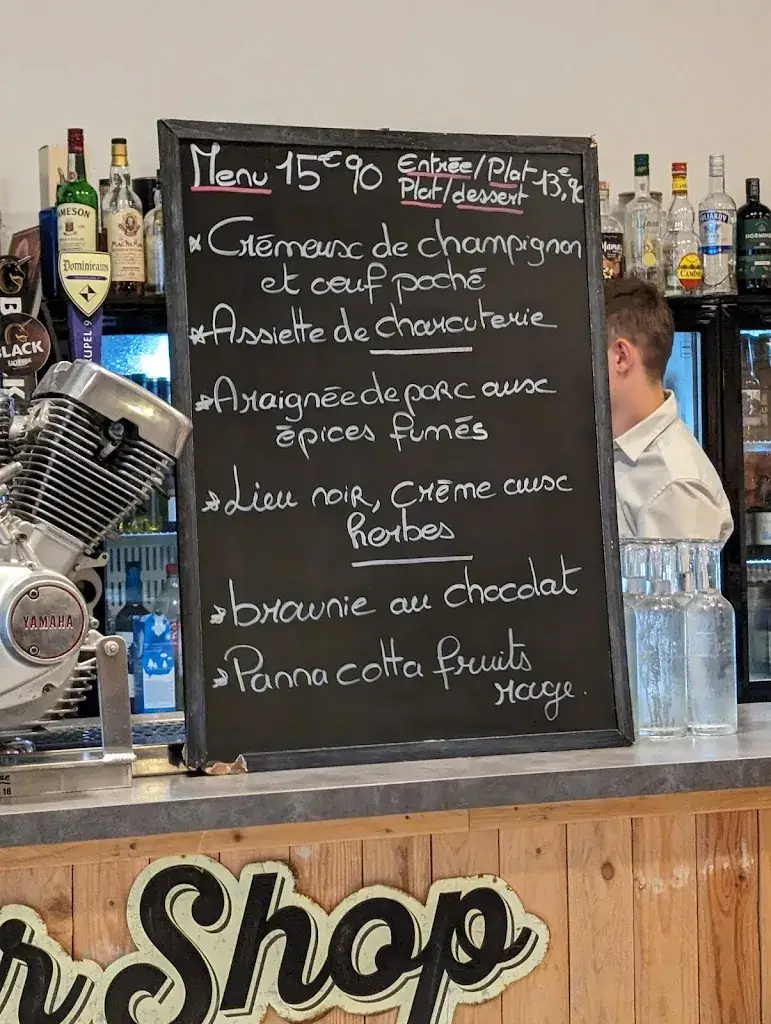 Menu 15€90 Entrée/Plat 13,€9
Plat/dessert
* Crémeux de champignon
et œuf poché
* Assiette de charcuterie
* Araignée de porc aux
épices fumés
* Lieu noir, crème aux
herbes
* brownie au chocolat
* Panna cotta fruits
rouge.
JAMESON
Dominicains
BLACK
TRUPEL 9
YAMAHA
POLIAKOV
CAMINO
r Shop